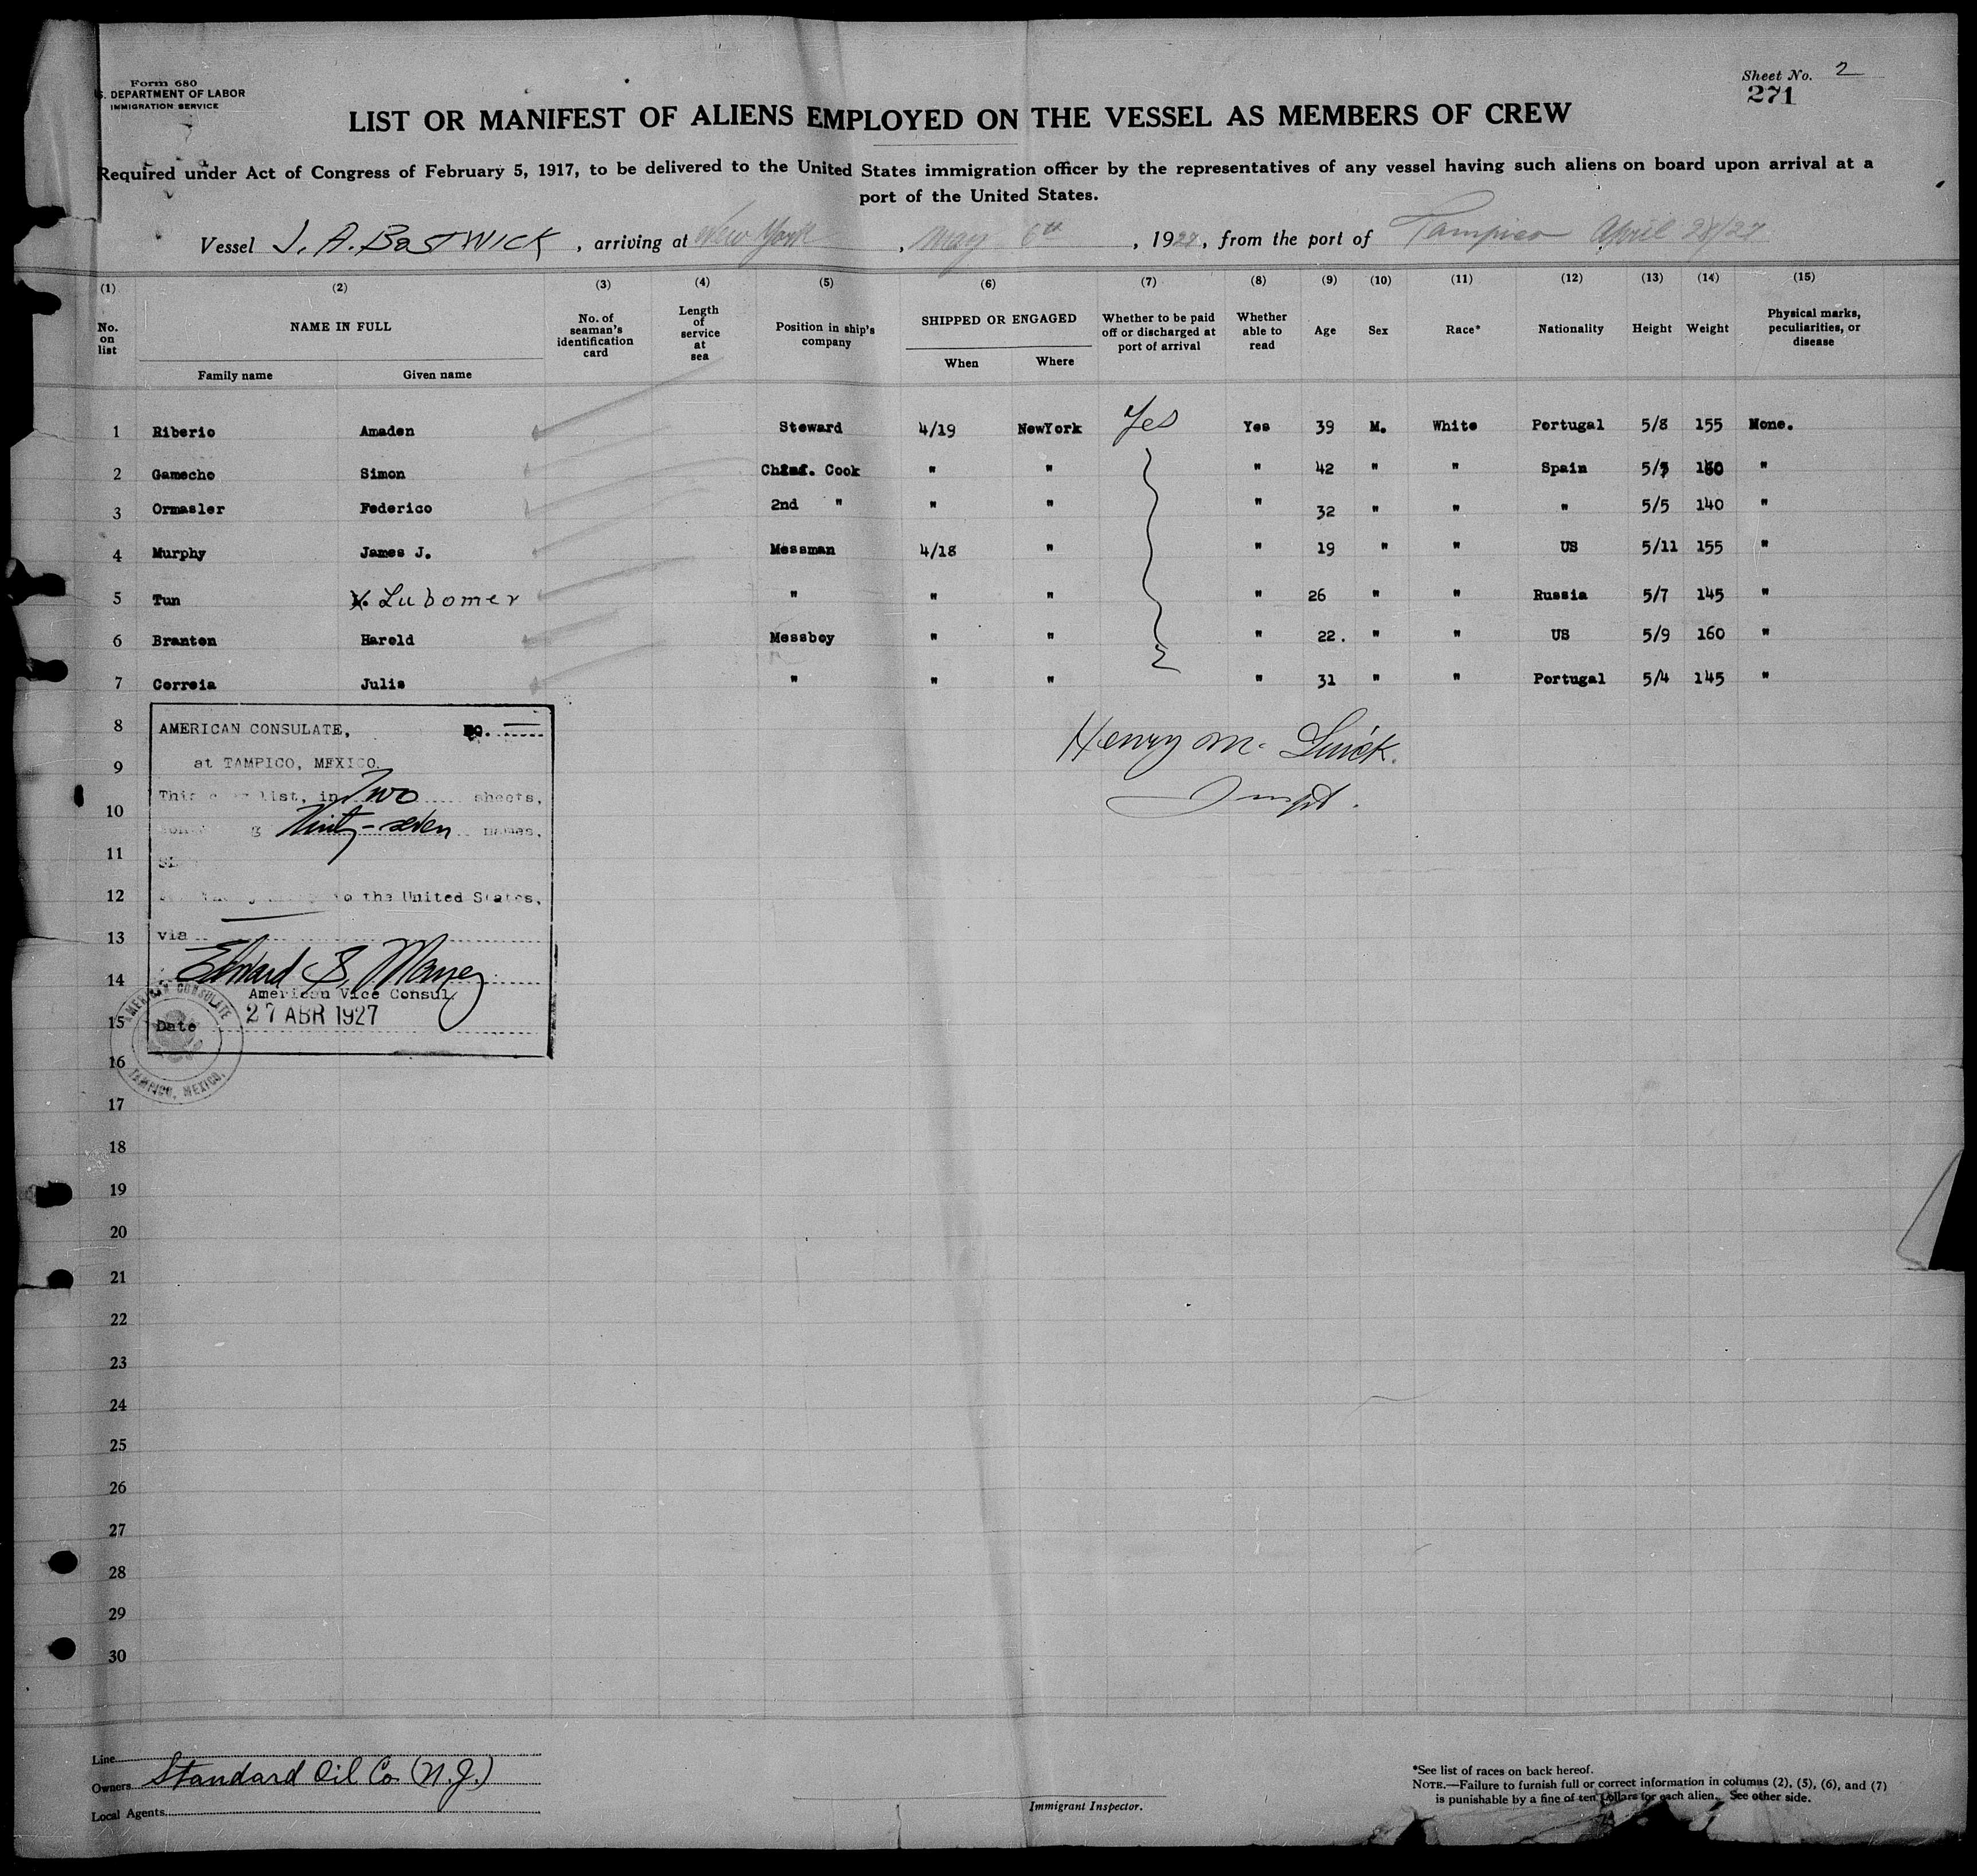 Form 680
S. DEPARTMENT OF LABOR
IMMIGRATION SERVICE
Sheet No. 2
271
LIST OR MANIFEST OF ALIENS EMPLOYED ON THE VESSEL AS MEMBERS OF CREW
Required under Act of Congress of February 5, 1917, to be delivered to the United States immigration officer by the representatives of any vessel having such aliens on board upon arrival at a
port of the United States.
Vessel J. A. BOSTWICK, arriving at New York, May 6th, 1927, from the port of Tampico April 28/27
(1) (2) (3) (4) (5) (6) (7) (8) (9) (10) (11) (12) (13) (14) (15)
No. on list NAME IN FULL No. of seaman's identification card Length of service at sea Position in ship's company SHIPPED OR ENGAGED Whether to be paid off or discharged at port of arrival Whether able to read Age Sex Race* Nationality Height Weight Physical marks, peculiarities, or disease
Family name Given name When Where
1 Riberio Amaden Steward 4/19 NewYork Yes Yes 39 M. White Portugal 5/8 155 None.
2 Gamecho Simon Chief. Cook " " " 42 " " Spain 5/ "
3 Ormasler Federico 2nd " " " " 32 " " " 5/5 140 "
4 Murphy James J. Messman 4/18 " " 19 " " US 5/11 155 "
5 Tun Lubomer " " " " 26 " " Russia 5/7 145 "
6 Branton Harold Messboy " " " 22. " " US 5/9 160 "
7 Correia Julio " " " " 31 " " Portugal 5/4 145 "
Henry M.
Inspt.
8
9
10
11
12
13
14
15
16
17
18
19
20
21
22
23
24
25
26
27
28
29
30
AMERICAN CONSULATE, NO.
at TAMPICO, MEXICO.
This list, in Two sheets,
thirty-seven names,
to the United States,
via
Edward S. Maney
American Vice Consul
Date 27 ABR 1927
AMERICAN CONSULATE
TAMPICO, MEXICO.
Line
Owners Standard Oil Co. (N.J.)
Local Agents
Immigrant Inspector.
*See list of races on back hereof.
NOTE.—Failure to furnish full or correct information in columns (2), (5), (6), and (7)
is punishable by a fine of ten dollars for each alien. See other side.